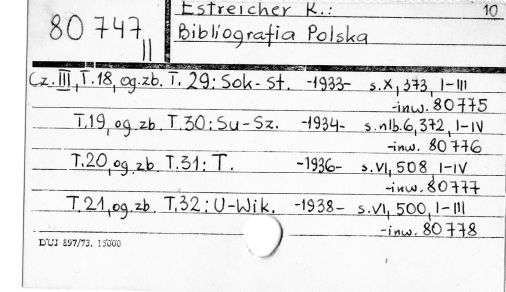 Estreicher K.: 10
80 747 II
Bibliografia Polska
Cz. III, T.18, og.zb. T. 29: Sok-St. -1933- s.X, 373, I-III
-inw. 80 775
T.19, og.zb. T.30: Su-Sz. -1934- s.nlb.6, 372, I-IV
-inw. 80 776
T.20, og.zb. T.31: T. -1936- s.VI, 508, I-IV
-inw. 80 777
T.21, og.zb. T.32: U-Wik. -1938- s.VI, 500, I-III
-inw. 80 778
DUJ 897/73. 15000